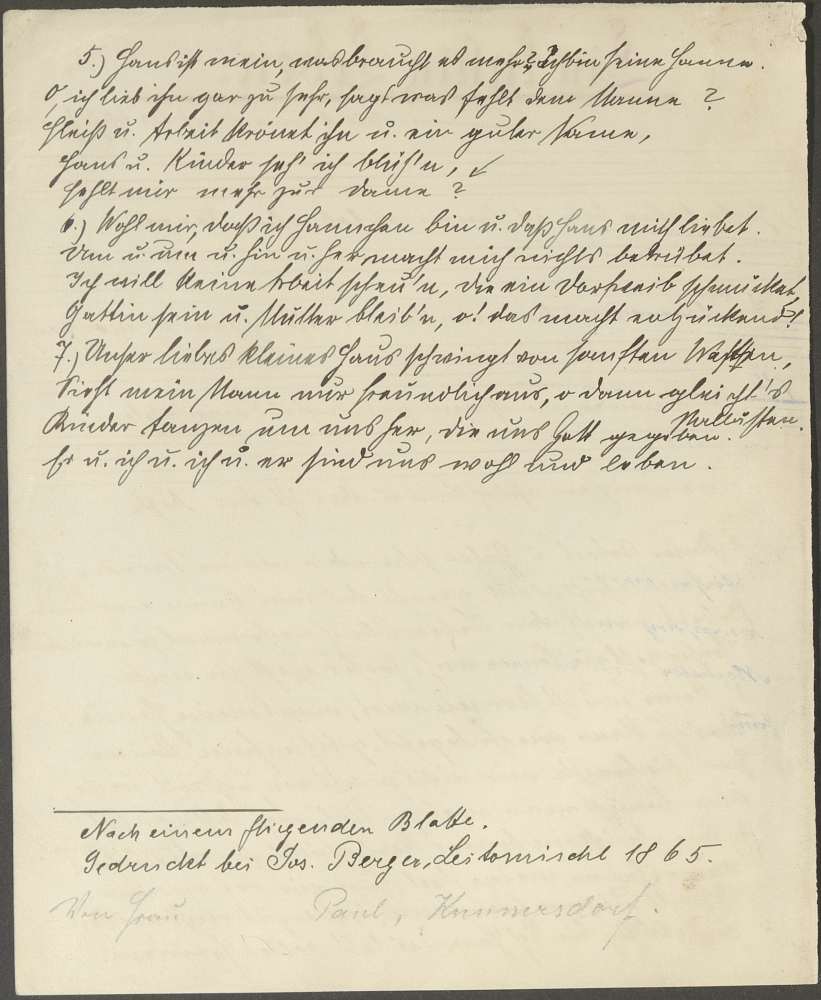 5.) Hans ist mein, was braucht es mehr? Ich bin seine Hanne.
O, ich lieb ihn gar zu sehr, sagt was fehlt dem Manne?
Fleiß u. Arbeit krönet ihn u. ein guter Name,
Hans u. Kinder seh' ich blüh'n,
fehlt mir mehr zur Dame?
6.) Wohl mir, daß ich Hannchen bin u. daß Hans mich liebet.
Um u. um u. hin u. her, macht mich nichts betrübet.
Ich will keine Arbeit scheu'n, die ein Dorfweib schmücket,
Gattin sein u. Mutter bleib'n, o! das macht entzückend!
7.) Unser liebes kleines Haus schwingt von sanften Westen,
Sieht mein Mann nur freundlich aus, o dann gleicht's
Pallästen.
Kinder tanzen um uns her, die uns Gott gegeben.
Er u. ich u. ich u. er sind uns wohl und leben.
Nach einem fliegenden Blatte.
Gedruckt bei Jos. Berger, Leitomischl 1865.
Von Frau Paul, Kunnersdorf.